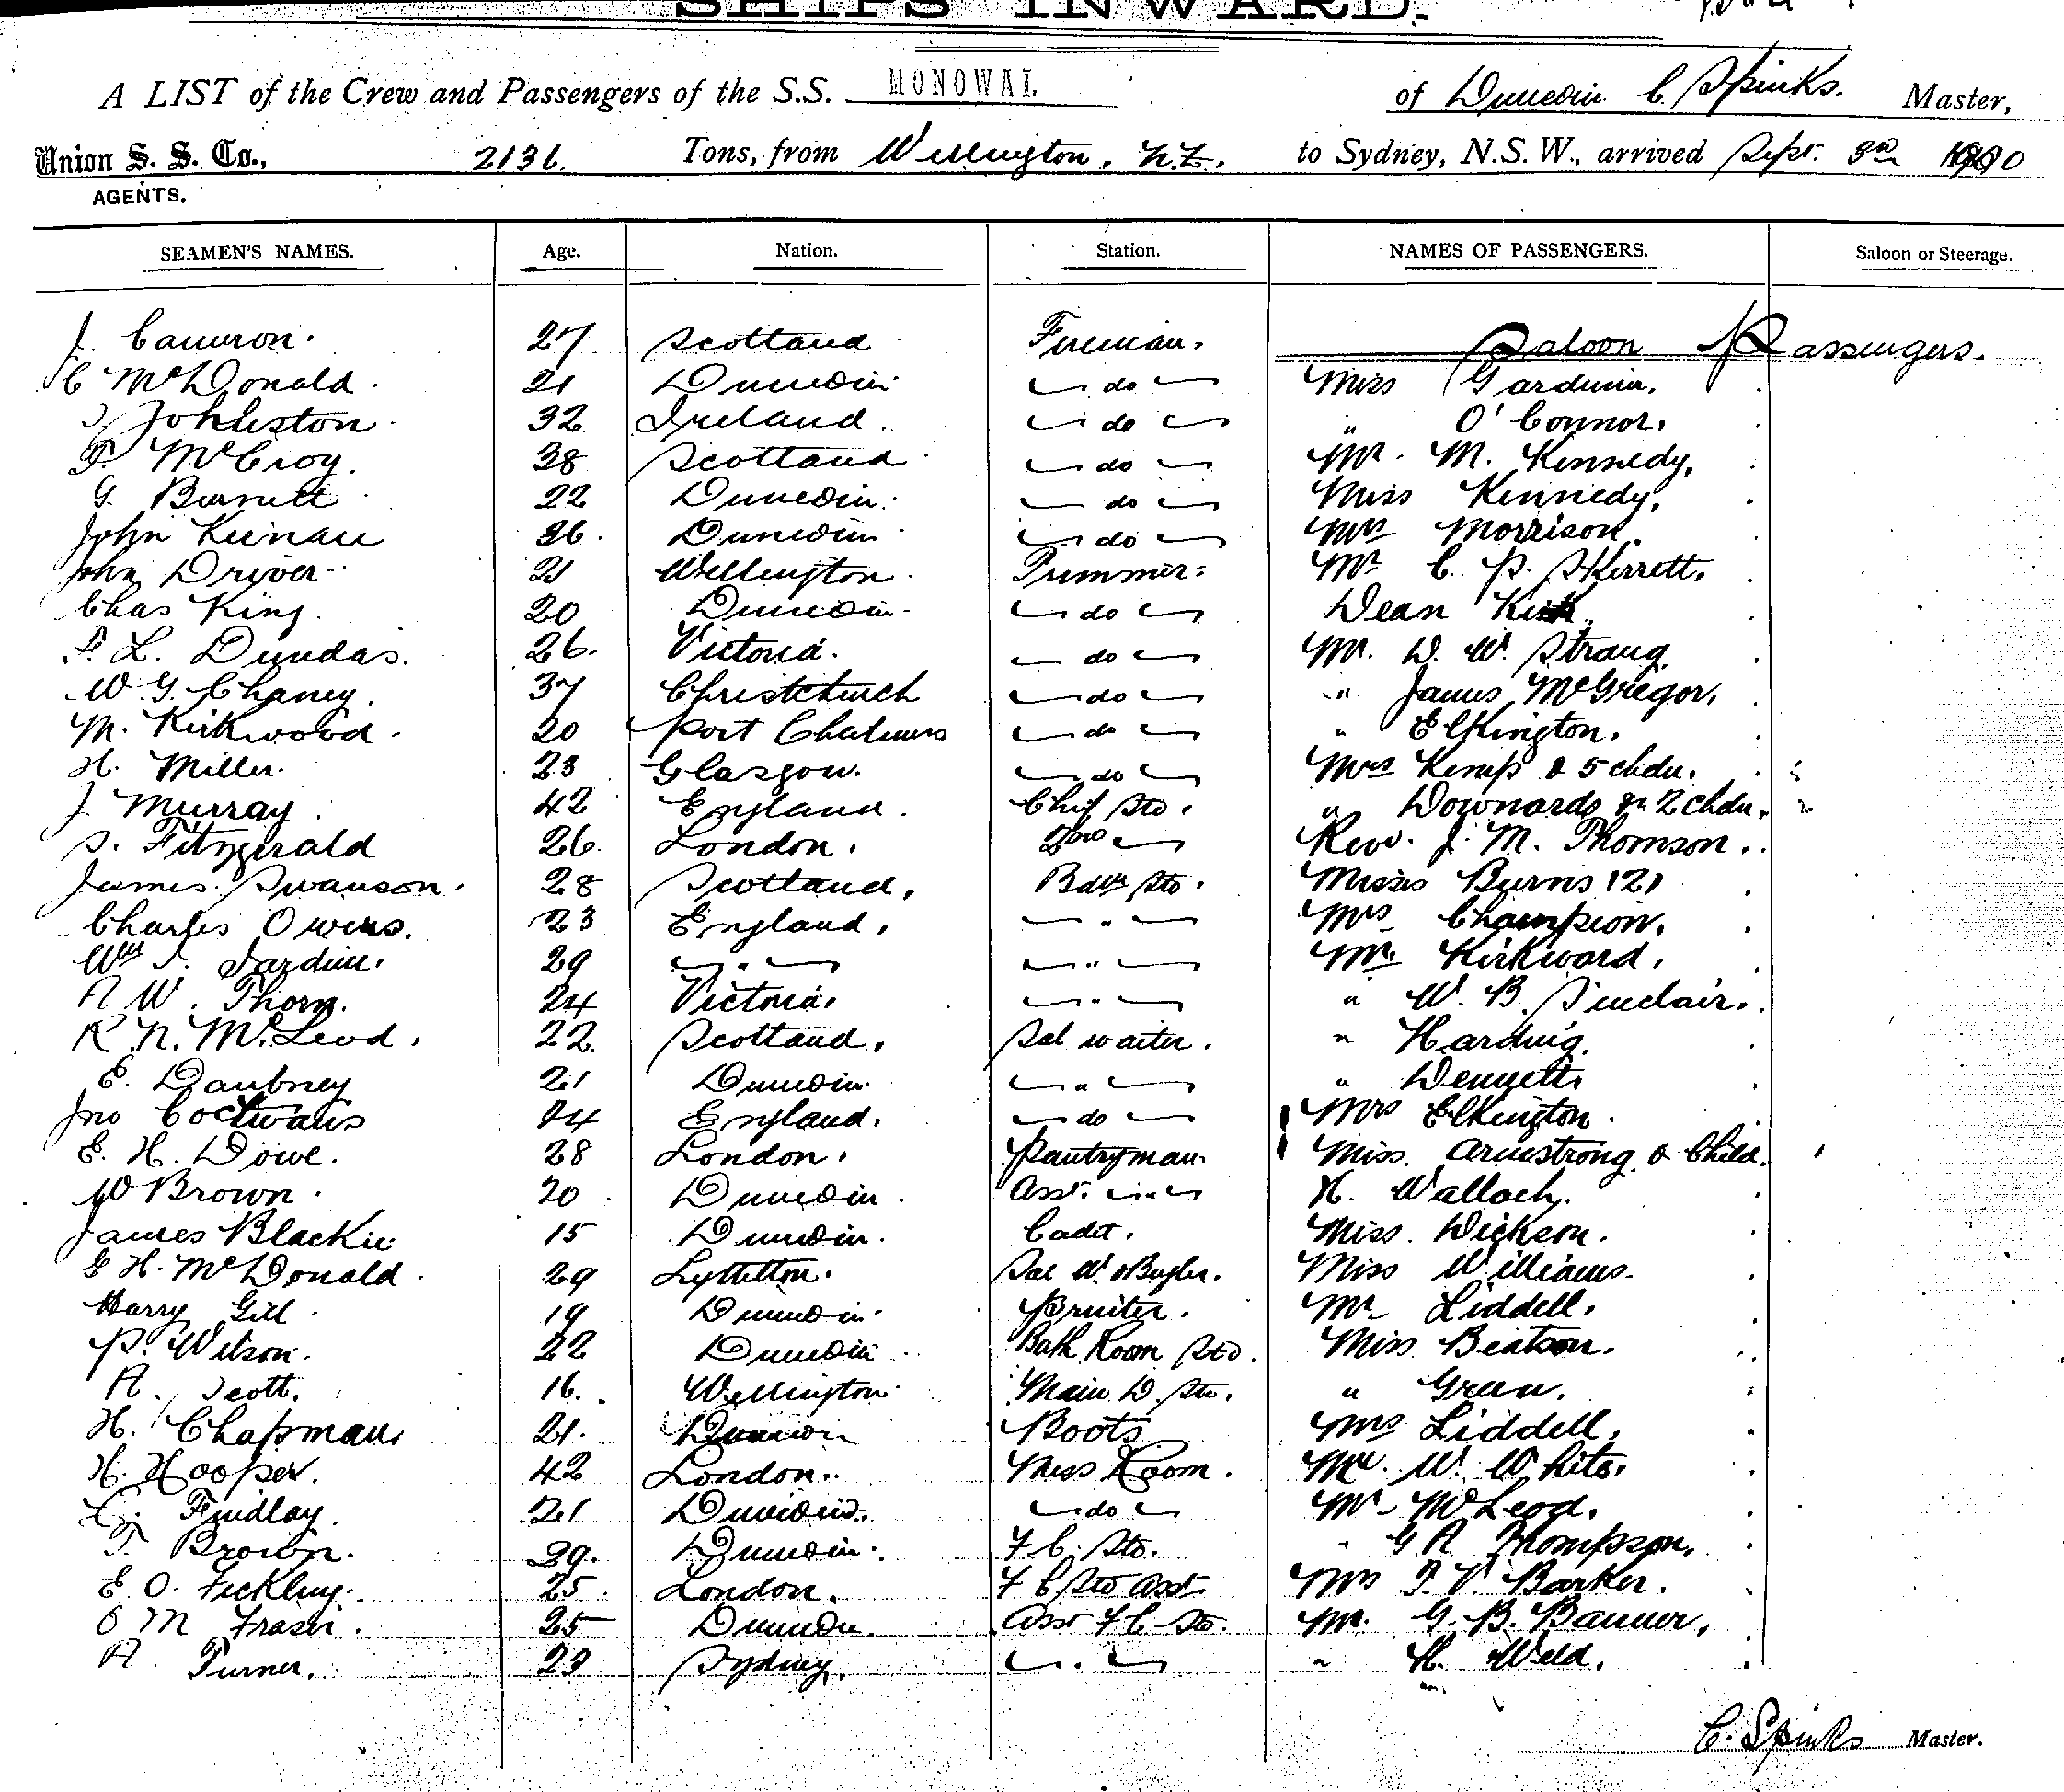 SHIPS INWARD.
A LIST of the Crew and Passengers of the S.S. MONOWAI of Dunedin C. Spinks. Master,
Union S. S. Co., 2136 Tons, from Wellington, N.Z., to Sydney, N.S.W., arrived Sept. 3rd 1900
AGENTS.
SEAMEN'S NAMES. Age. Nation. Station. NAMES OF PASSENGERS. Saloon or Steerage.
J. Cameron. 27 Scotland Fireman. Saloon Passengers.
C McDonald. 21 Dunedin do Miss
Johnston 32 Ireland. do " O'Connor.
McCroy. 38 Scotland do Mr. M. Kennedy.
G Burnett 22 Dunedin. do Miss Kennedy.
John 26. Dunedin do Mrs Morrison.
John Driver 21 Wellington. Trimmer. Mr C. P. Skerrett.
Chas King. 20 Dunedin. do Dean Kirk
F. L. Dundas. 26. Victoria. do Mr. D. W. Strang
W. G. Chaney. 37 Christchurch do " James McGregor.
M. Kirkwood. 20 Port Chalmers do " Elkington.
H. Miller. 23 Glasgow. do Mrs Kemp & 5 chdn.
J Murray. 42 England. Chief Std. " Downards & 2 chdn.
S. Fitzgerald 26. London. 2nd Rev. J. M. Thomson.
James Swanson. 28 Scotland. Bdrm Std. Misses Burns (2)
Charles Owens. 23 England. " Mrs Champion.
Wm J. Jardine. 29 " " Mr Kirkward.
A W. Thorn. 24 Victoria. " " W. B. Sinclair.
R. N. McLeod. 22 Scotland. Sal waiter. " Harding.
E. Daubney 21 Dunedin " "
Jno 24 England. do Mrs Elkington.
E. H. Dowe. 28 London. Pantryman Miss. Armstrong & Child.
W Brown. 20 Dunedin. Asst. " H. Wallach.
James Blackie 15 Dunedin. Cadet. Miss. Dickson.
G H. McDonald. 29 Lyttelton. Sal W. & Bugler. Miss Williams.
Harry Gill. 19 Dunedin. Printer. Mr Liddell.
P. Wilson. 22 Dunedin Bath Room Std. Miss Beatson.
A. Scott. 16. Wellington. Main D. Std. " Green.
H. Chapman. 21. Dunedin Boots Mrs Liddell.
H. Hooper. 42 London. Mess Room. Mr. W. White.
Findlay. 21 Dunedin. do Mr McLeod.
T. Brown. 29. Dunedin. F C. Std. " G A Thompson.
E. O. Fickling. 25. London. F C Std Asst Mrs F. V. Barker.
O M Fraser. 25 Dunedin. Asst F C Std. Mr. G. B. Banner.
A. Turner. 23 Sydney. " " H. Weld.
C. Spinks Master.